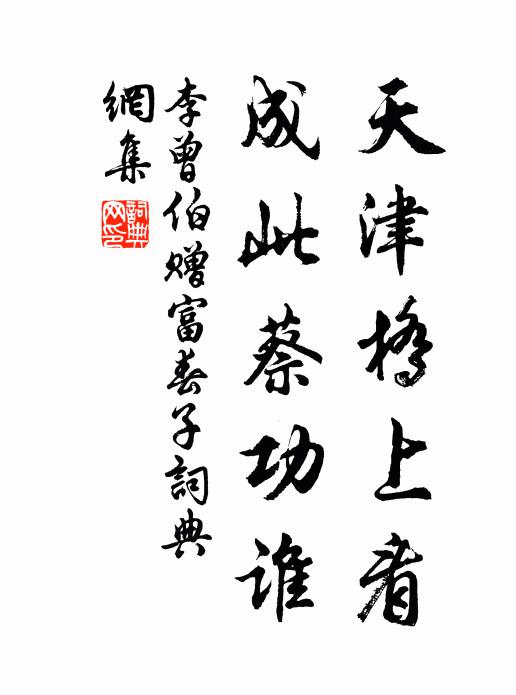 天津橋上看
成此蔡功誰
李曾伯贈富春子詞典
網集
詞典
网印